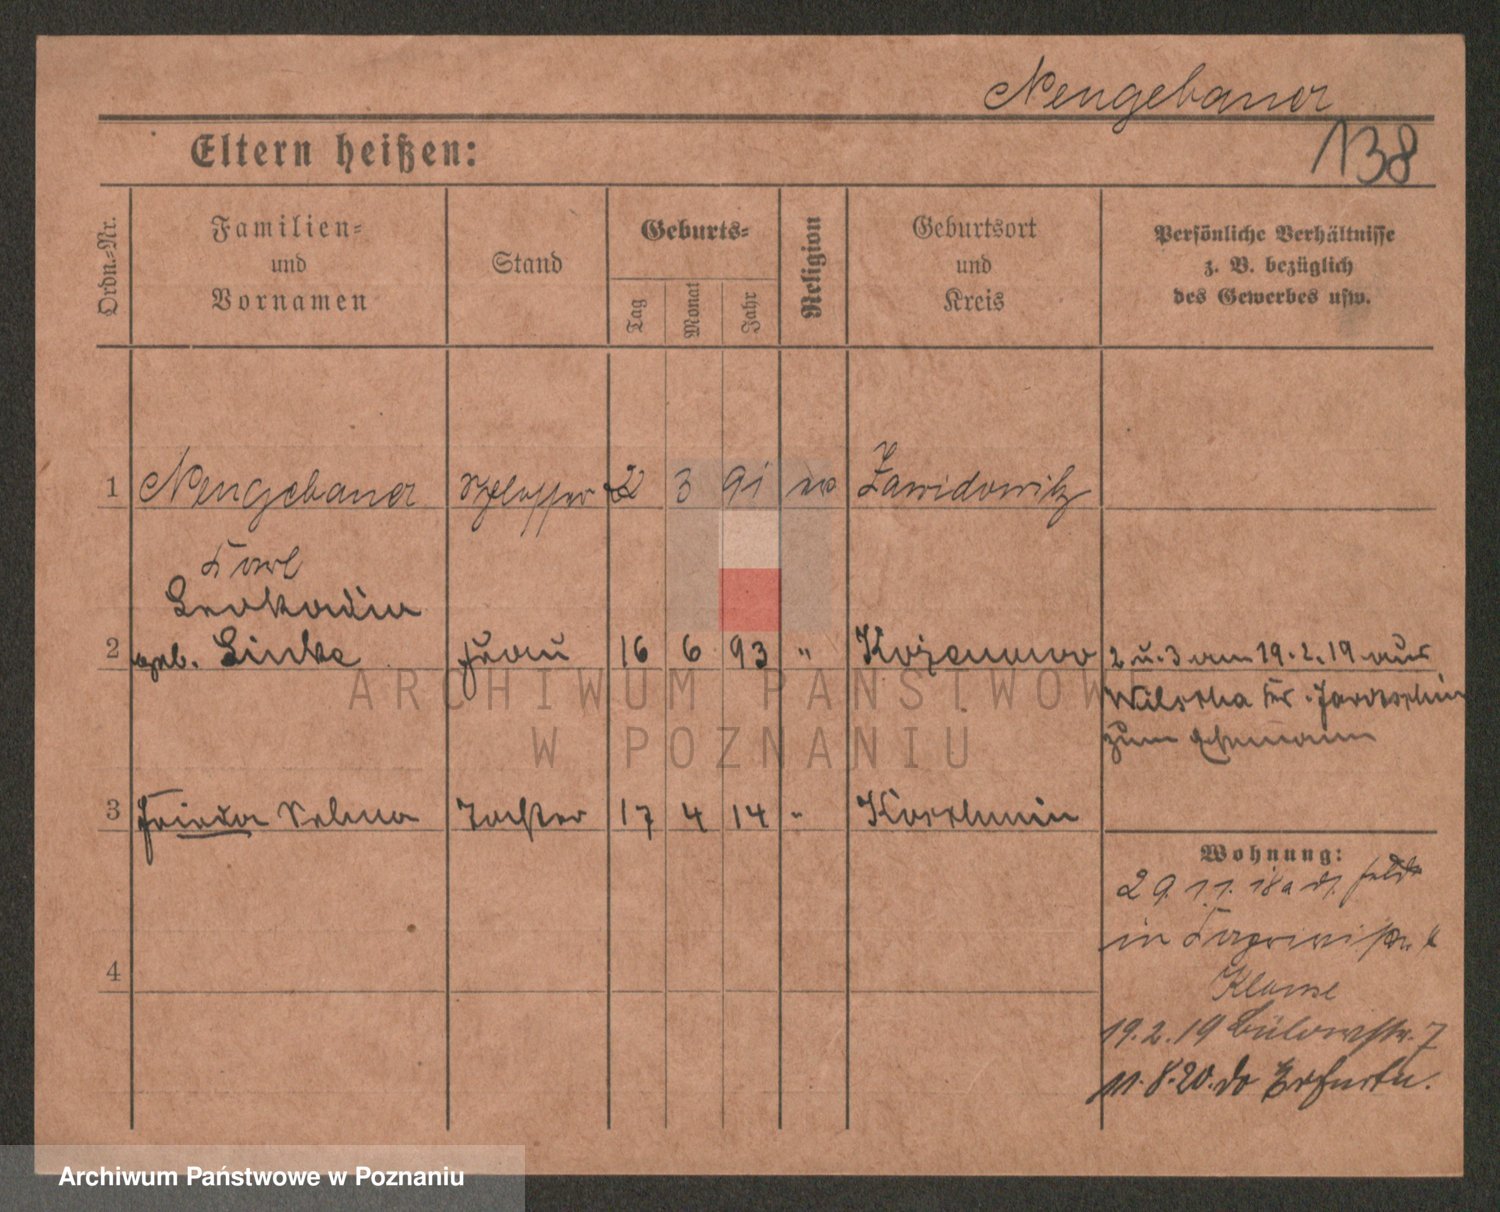 Neugebauer
138
Eltern heißen:
Ordn.-Nr.
Familien-
und
Vornamen
Stand
Geburts-
Tag
Monat
Jahr
Religion
Geburtsort
und
Kreis
Persönliche Verhältnisse
z. B. bezüglich
des Gewerbes usw.
1 Neugebauer Schlosser 2 3 91 ev Zawidowitz
Karl
Leokadia
2 geb. Linke Frau 16 6 93 " 2 u. 3 am 19.2.19 aus
Kr. Jarotschin
zum Ehemann
3 Frieda Selma Tochter 17 4 14 " Koschmin
Wohnung:
29.11.18 a. d. Felde
in
19.2.19 Bülowstr. 7
11.8.20. do Erfurt
4
ARCHIWUM PAŃSTWOWE
W POZNANIU
Archiwum Państwowe w Poznaniu